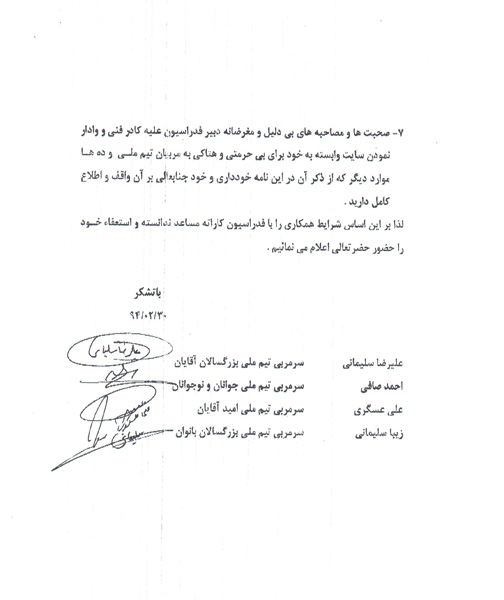 ۷- صحبت ها و مصاحبه های بی دلیل و مغرضانه دبیر فدراسیون علیه کادر فنی و وادار
نمودن سایت وابسته به خود برای بی حرمتی و هتاکی به مربیان تیم ملی و ده ها
موارد دیگر که از ذکر آن در این نامه خودداری و خود جنابعالی بر آن واقف و اطلاع
کامل دارید .
لذا بر این اساس شرایط همکاری را با فدراسیون کاراته مساعد ندانسته و استعفاء خود
را حضور حضرتعالی اعلام می نمائیم .
باتشکر
۹۴/۰۲/۳۰
علیرضا سلیمانی سرمربی تیم ملی بزرگسالان آقایان
علیرضا سلیمانی
احمد صافی سرمربی تیم ملی جوانان و نوجوانان
علی عسگری سرمربی تیم ملی امید آقایان
زیبا سلیمانی سرمربی تیم ملی بزرگسالان بانوان
سلیمانی